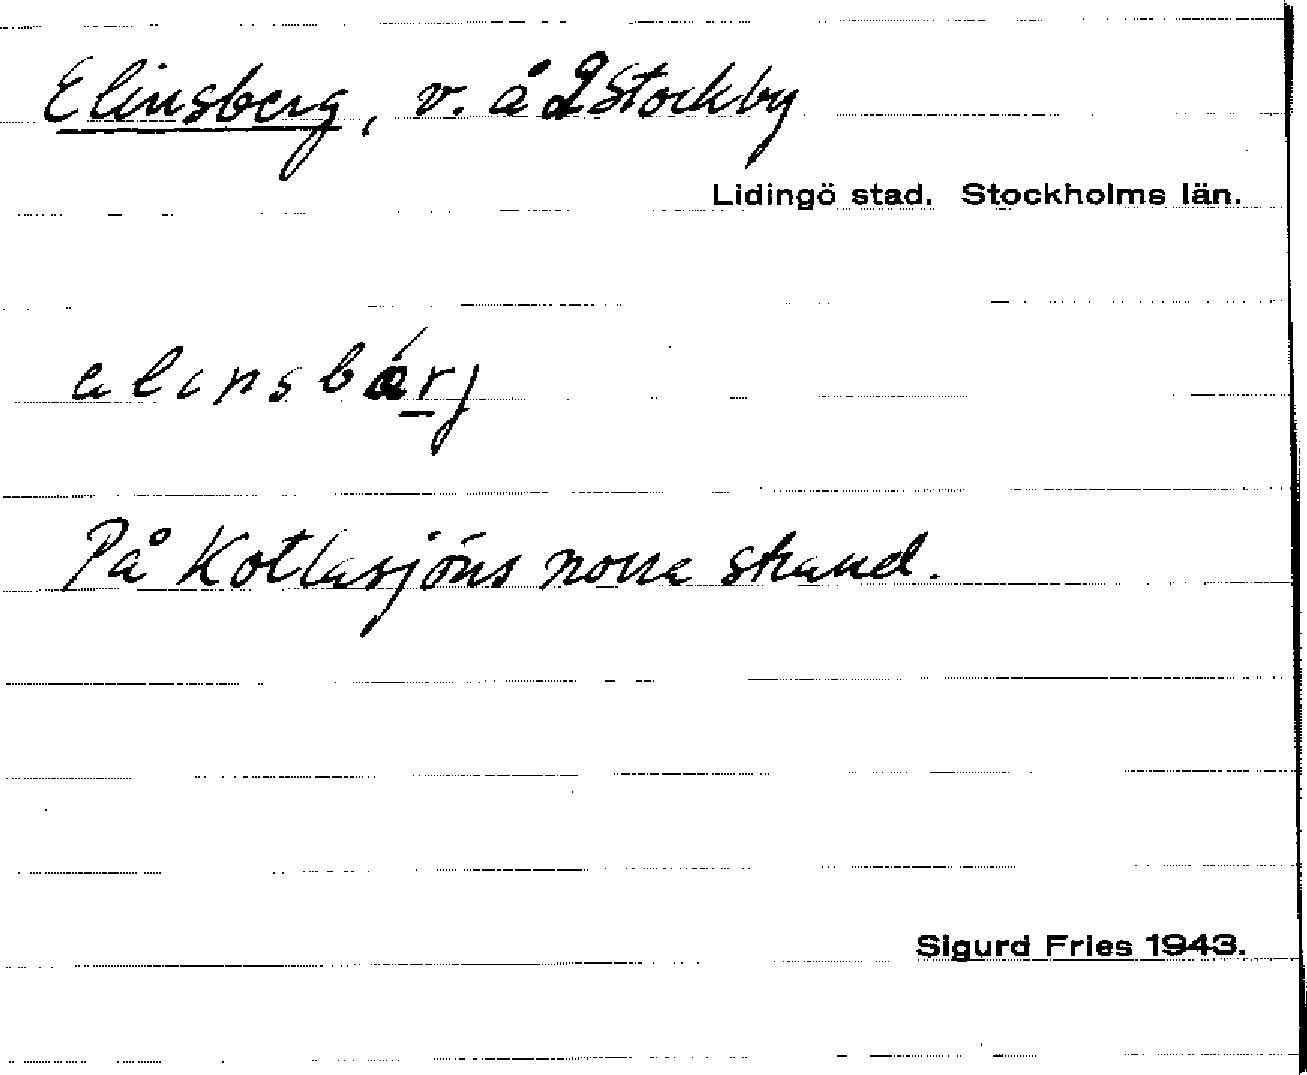 Elinsberg, v. å 2 Stockby
Lidingö stad. Stockholms län.
På Kottlasjöns norra strand.
Sigurd Fries 1943.